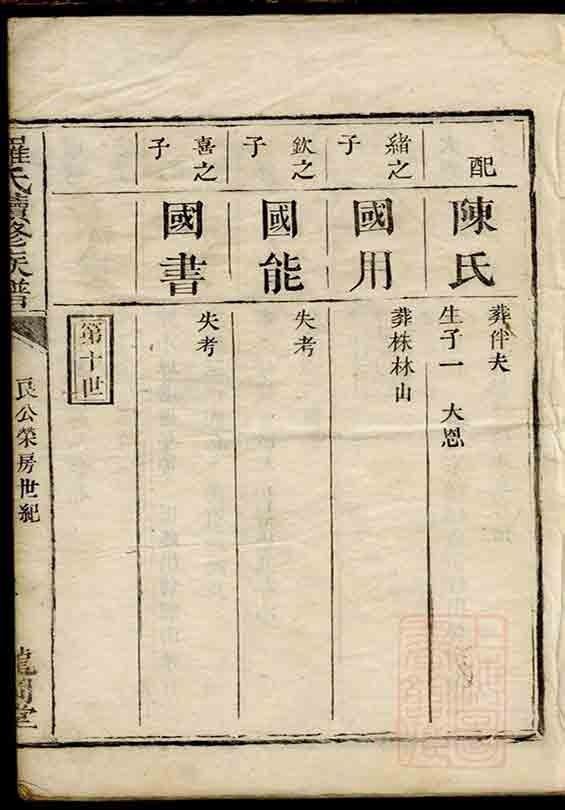 配
陳氏
葬伴夫
生子一 大恩
緒之子
國用
葬株林山
欽之子
國能
失考
喜之子
國書
失考
第十世
羅氏續修族譜
良公榮房世紀